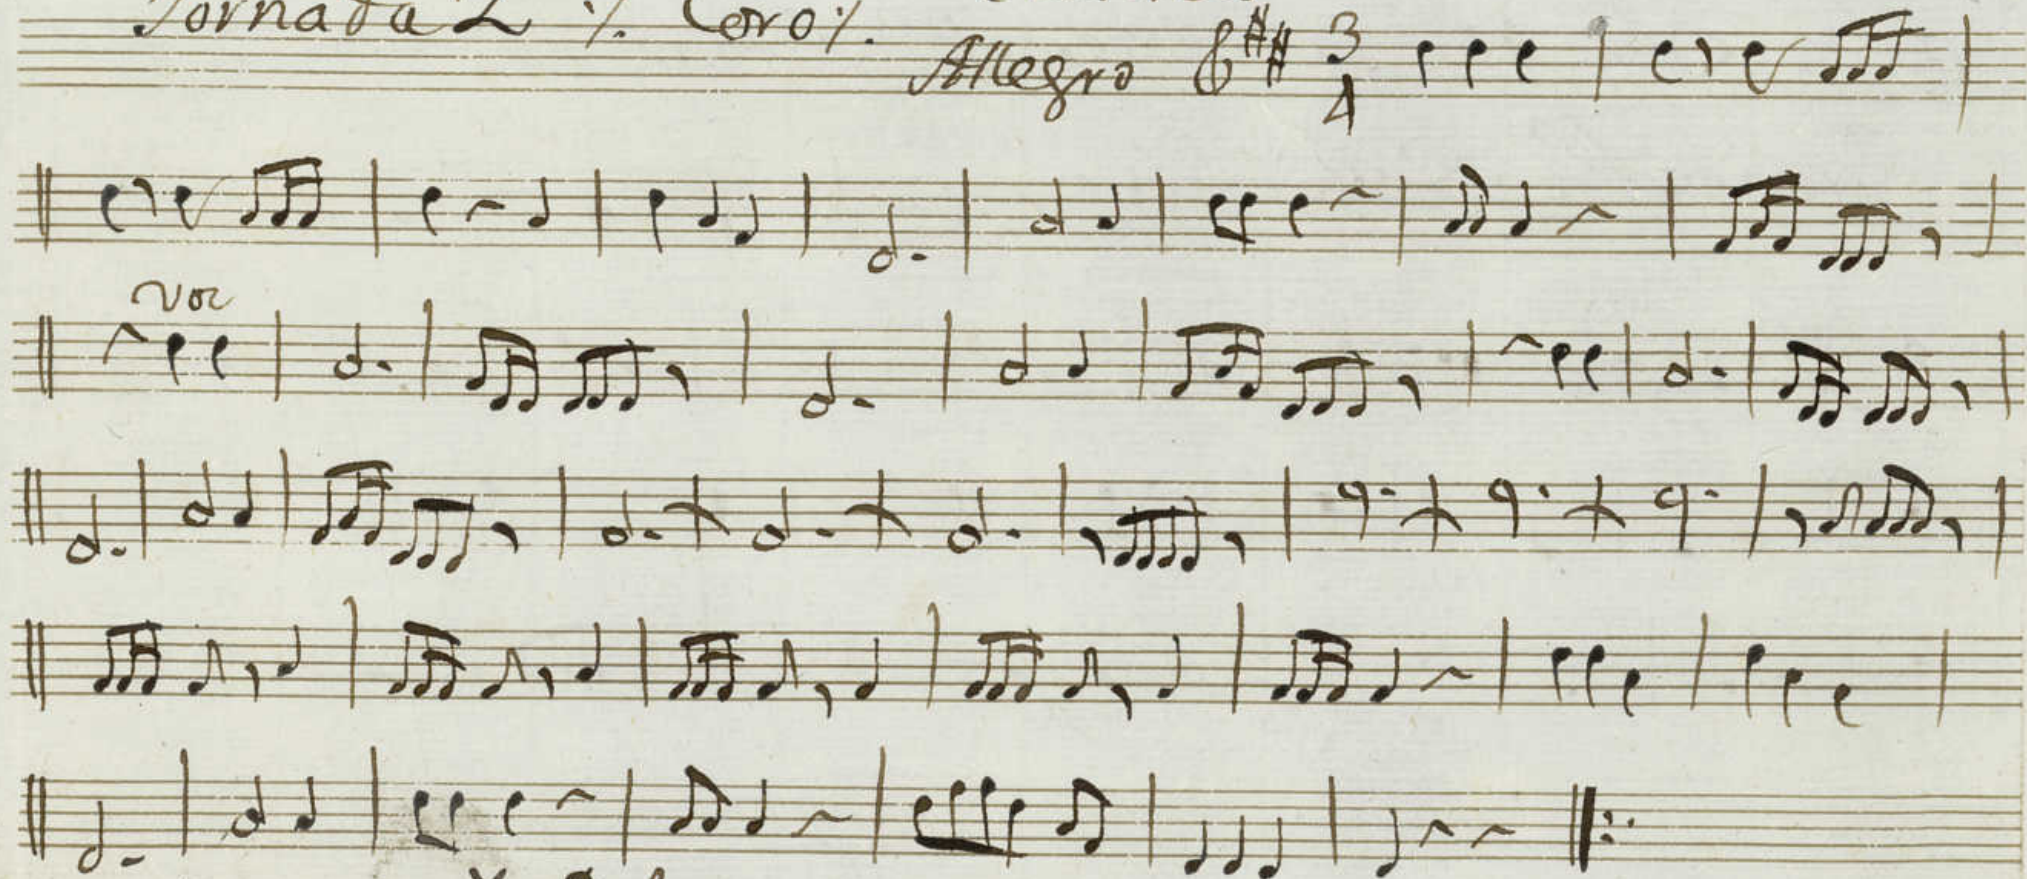 Jornada 2 ·/. Coro ·/.
Allegro 3 4
voz